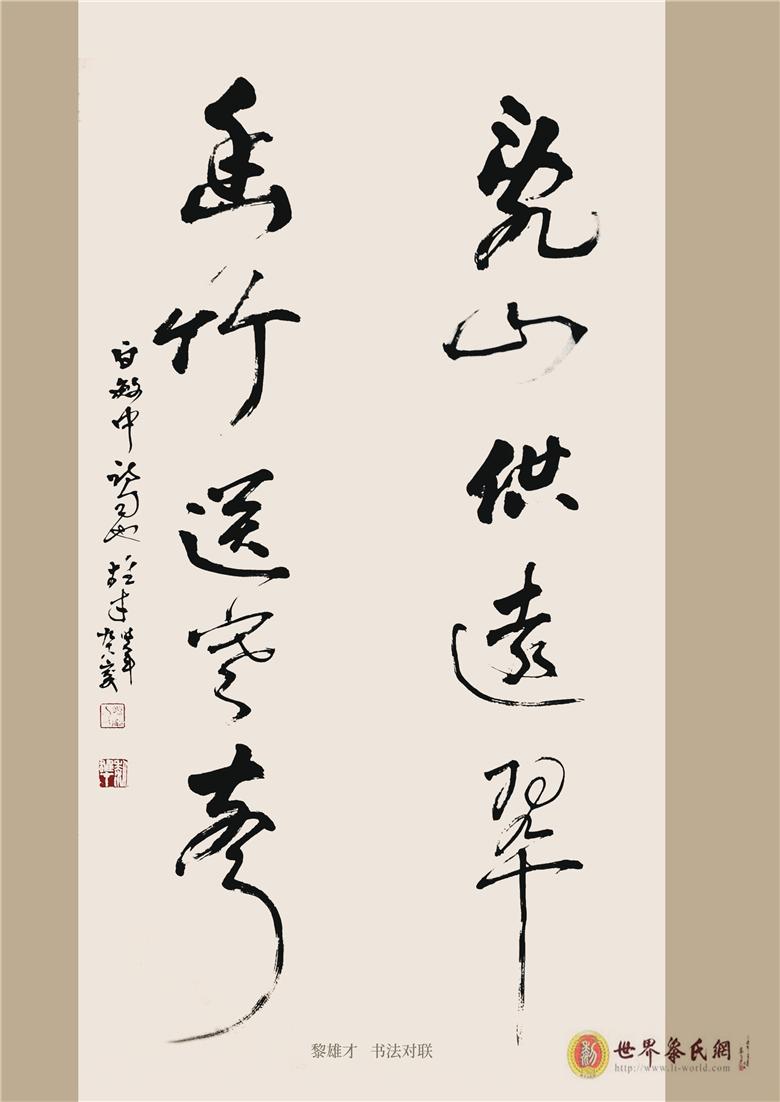 山供遠翠
垂竹送寒
白敏中詩句也
雄才
癸亥
黎雄才 书法对联
世界黎氏網
http://www.li-world.com